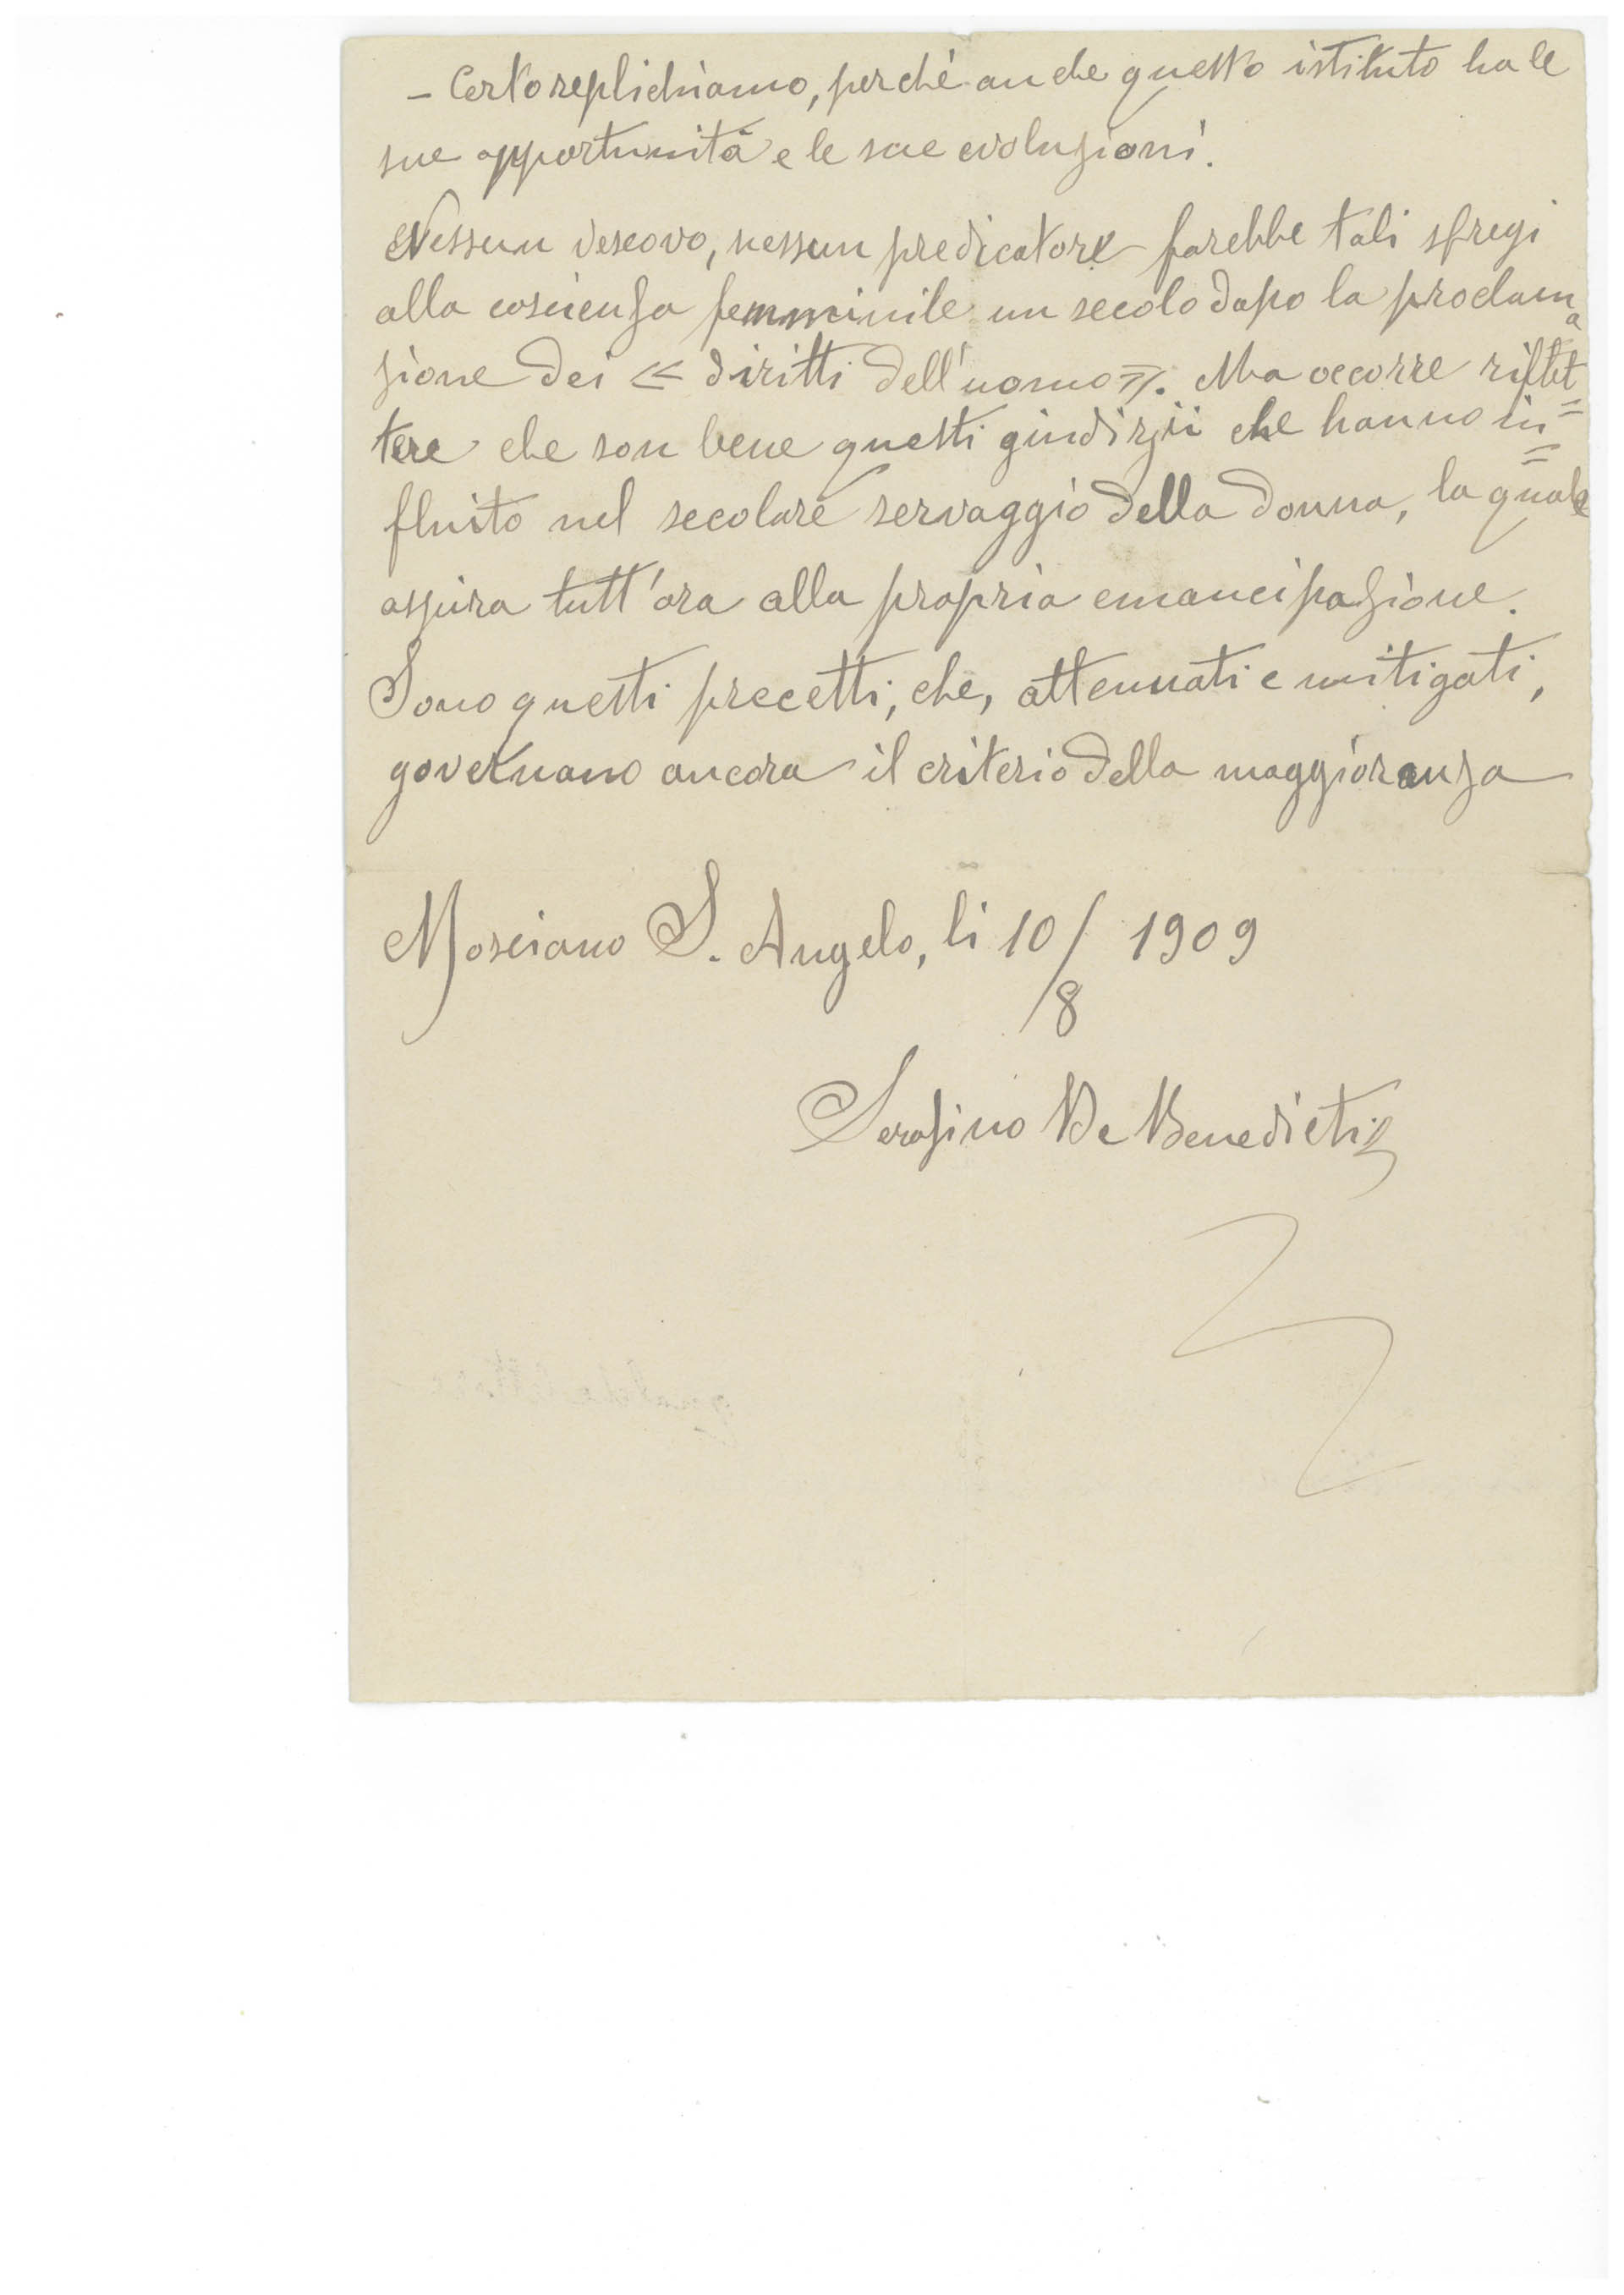 – Certo replichiamo, perchè anche questo istituto ha le
sue opportunità e le sue evoluzioni.
Nessun vescovo, nessun predicatore farebbe tali sfregi
alla coscienza femminile un secolo dopo la proclama
zione dei « diritti dell'uomo ». Ma occorre riflet=
tere che son bene questi giudizii che hanno in=
fluito nel secolare servaggio della donna, la quale
aspira tutt'ora alla propria emancipazione.
Sono questi precetti, che, attenuati e mitigati,
governano ancora il criterio della maggioranza
Mosciano S. Angelo, li 10/8 1909
Serafino De Benedictis